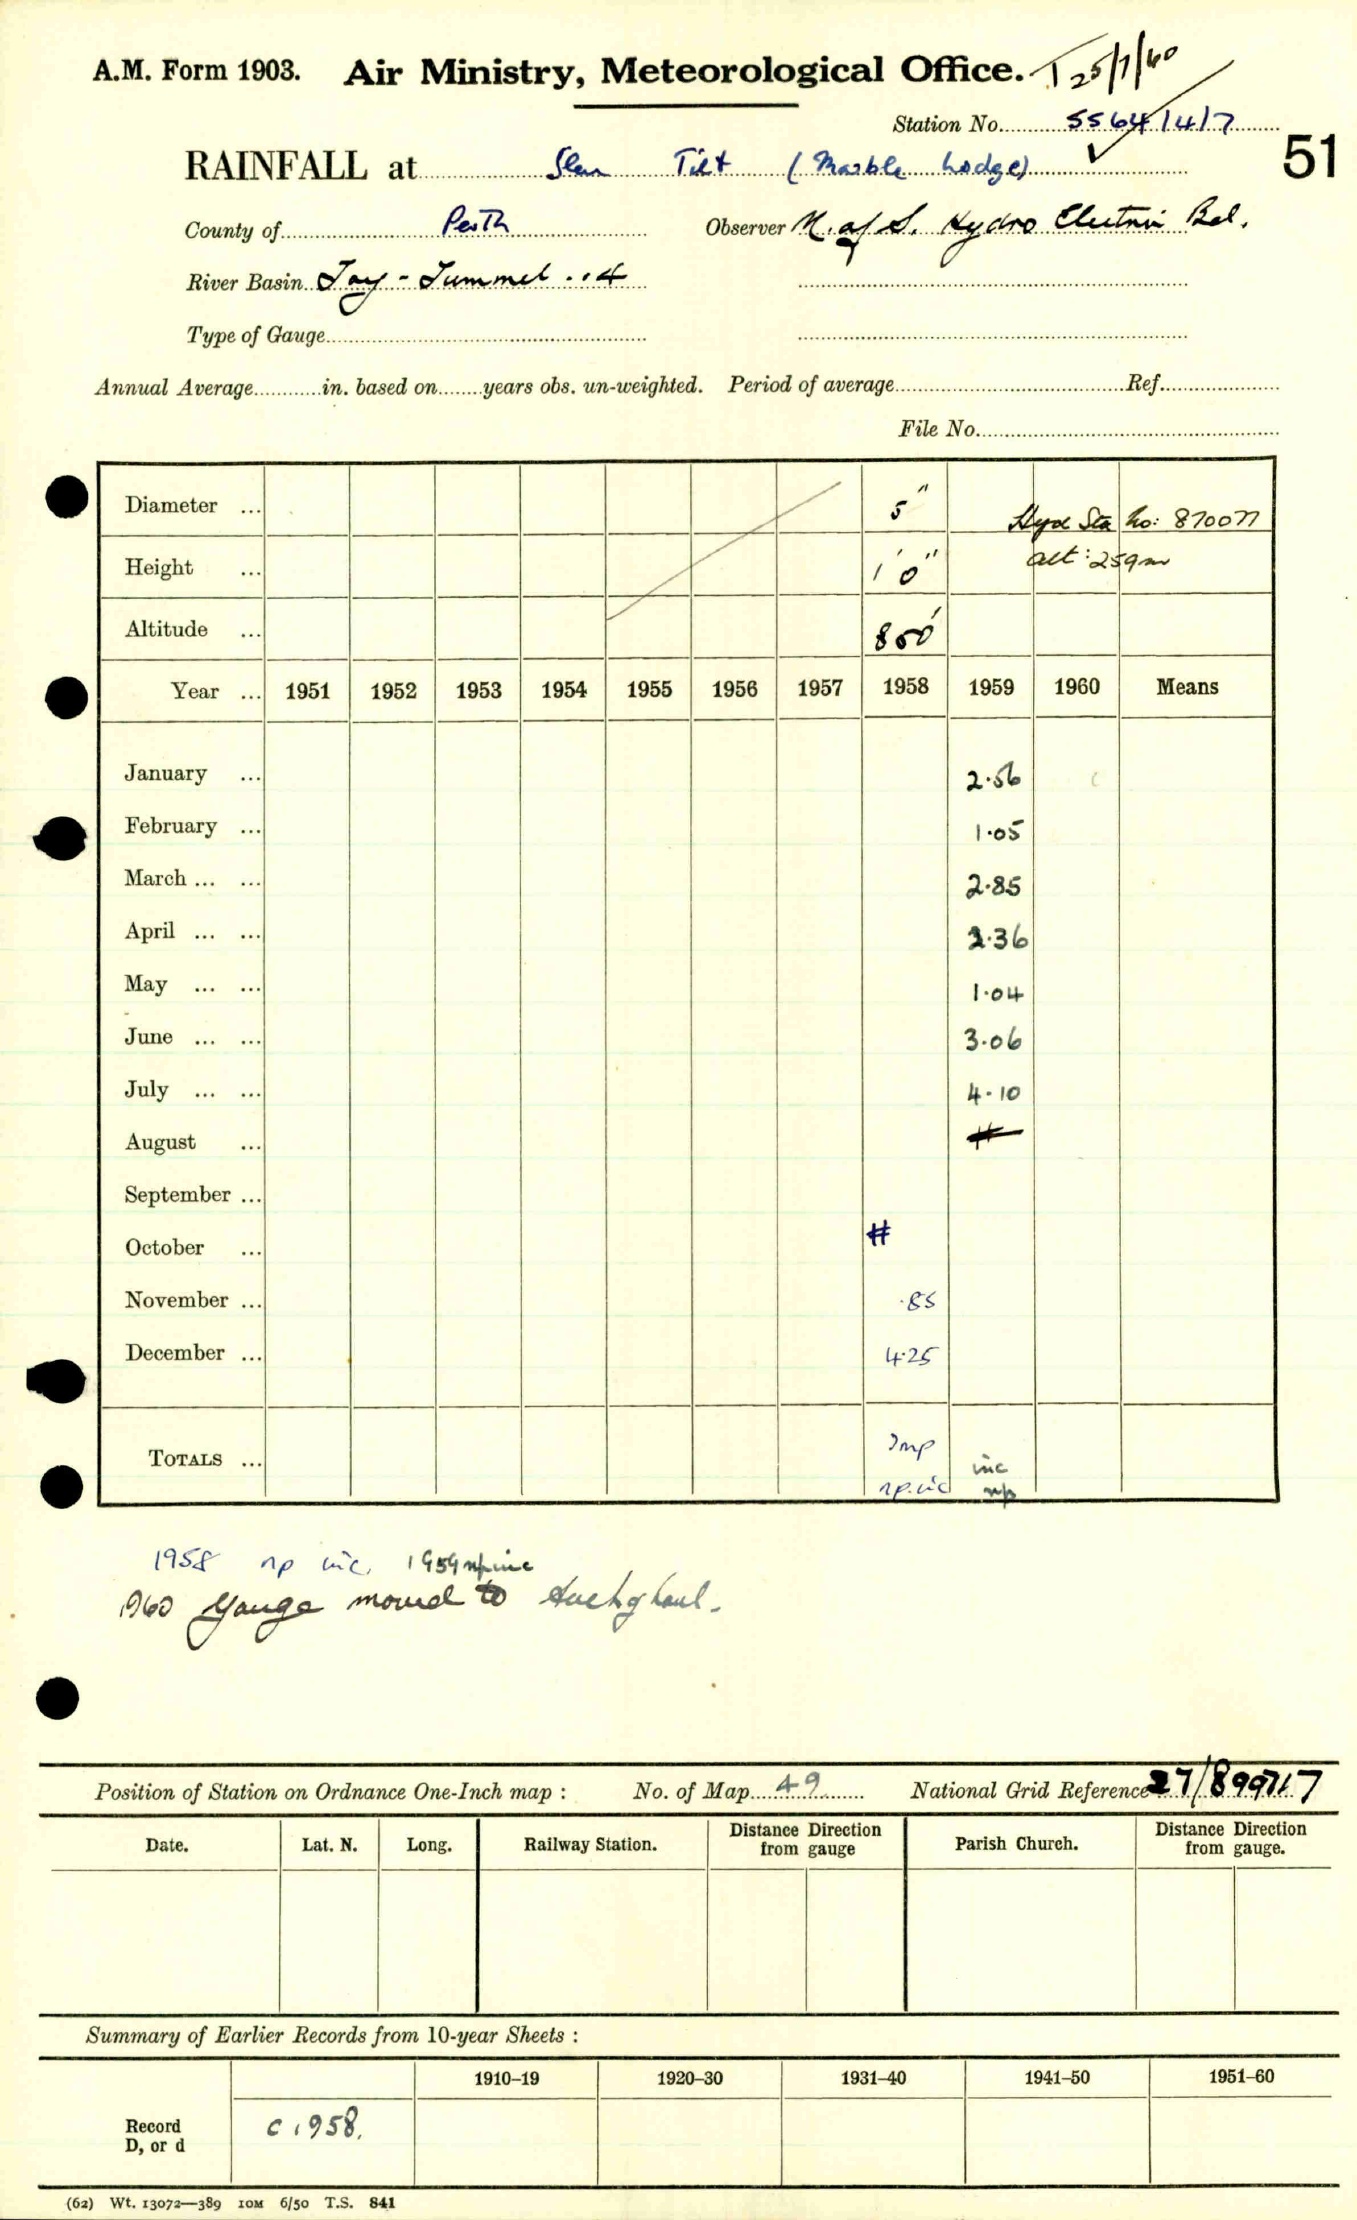 A.M. Form 1903. Air Ministry, Meteorological Office. T 25/7/60
Station No. 5564/4/7
RAINFALL at Glen Tilt (Marble Lodge) 51
County of Perth Observer N. of S. Hydro Electric Bd.
River Basin Tay - Tummel .. 4
Type of Gauge
Annual Average in. based on years obs. un-weighted. Period of average Ref.
File No.
Diameter ... 5" Hyd Sta No: 870077
Height ... 1' 0" alt: 259m
Altitude ... 850'
Year ... 1951 1952 1953 1954 1955 1956 1957 1958 1959 1960 Means
January ... 2.56
February ... 1.05
March ... ... 2.85
April ... ... 2.36
May ... ... 1.04
June ... ... 3.06
July ... ... 4.10
August ...
September ...
October ... #
November ... .85
December ... 4.25
TOTALS ... Imp inc
np. inc np
1958 np inc. 1959 np inc
1960 Gauge moved to
Position of Station on Ordnance One-Inch map : No. of Map 49 National Grid Reference 27/899717
Date. Lat. N. Long. Railway Station. Distance from Direction gauge Parish Church. Distance from Direction gauge.
Summary of Earlier Records from 10-year Sheets :
1910–19 1920–30 1931–40 1941–50 1951–60
Record
D, or d c 1958.
(62) Wt. 13072—389 10M 6/50 T.S. 841